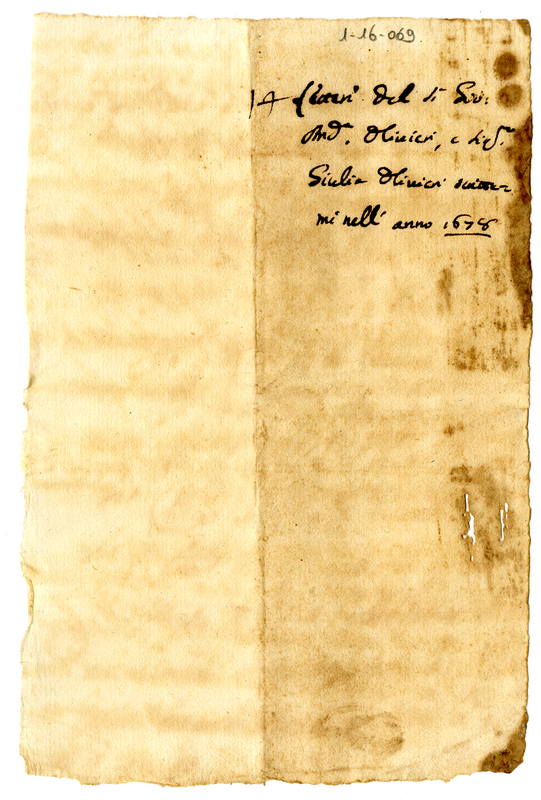 1-16-069
Lettere del S.r Gio:
And.a Olivieri, e Sig.ra
Giulia Olivieri scritte
mi nell' anno 1678